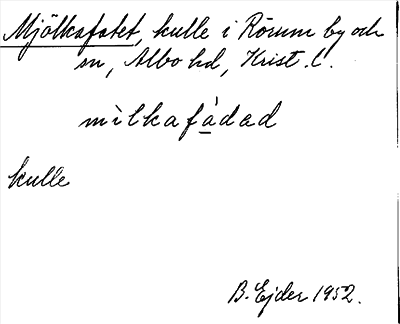 Mjölkafatet, kulle i Rörum by och
sn, Albo hd, Krist. l.
mìlkafà̲dad
kulle
B. Ejder 1952.